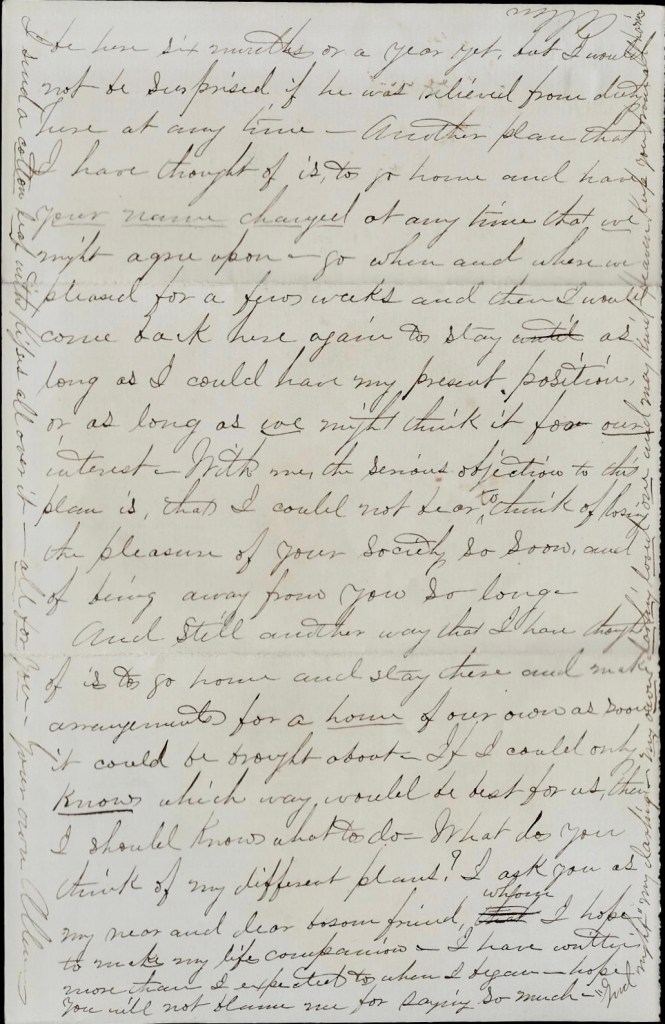 be here six months or a year yet, but I would
not be surprised if he was relieved from duty
here at any time — Another plan that
I have thought of is, to go home and have
your name changed at any time that we
might agree upon — go when and where we
pleased for a few weeks and then I would
come back here again to stay until as
long as I could have my present position,
or as long as we might think it for our
interest — With me, the serious objection to this
plan is, that I could not bear to think of losing
the pleasure of your society so soon, and
of being away from you so long —
And still another way that I have thought
of is to go home and stay there and make
arrangements for a home of our own as soon
it could be brought about — If I could only
know which way would be best for us, then
I should know what to do — What do you
think of my different plans? I ask you as
my near and dear bosom friend, that whom I hope
to make my life companion — I have written
more than I expected to, when I began — hope
you will not blame me for saying so much —
"Good night" my darling — my own darling loved one and may kind heaven keep you from all
I send a cotton leaf with kisses all over it — all for you — Your own Allen